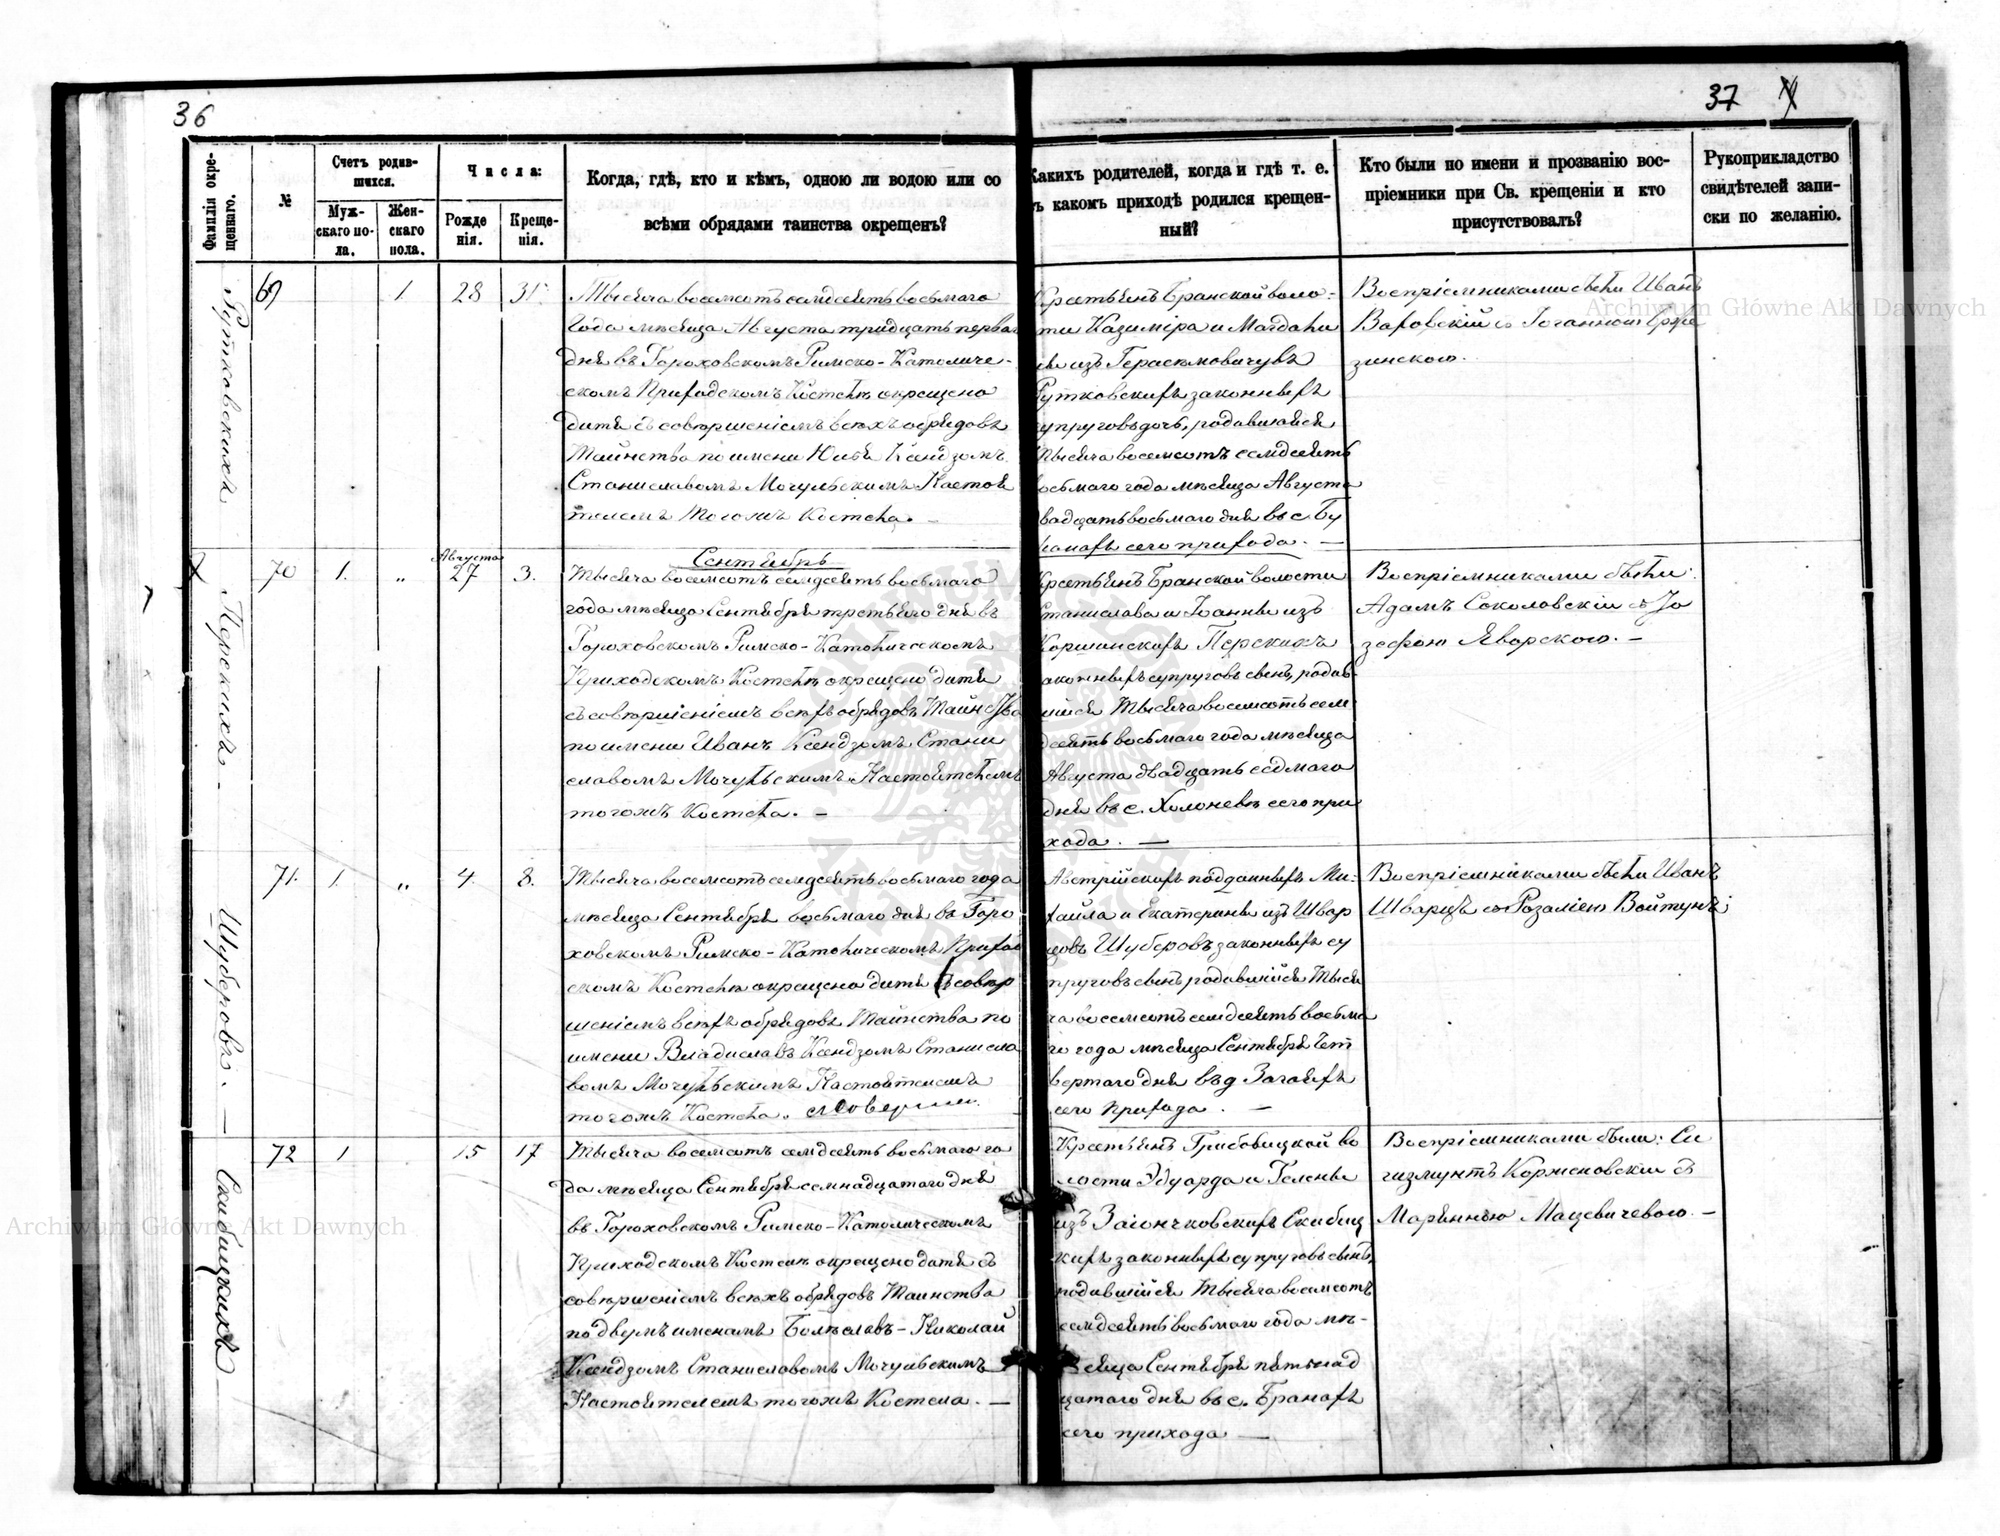 36
37
Фамилія окрещеннаго.
№
Счетъ родившихся.
Мужскаго пола.
Женскаго пола.
Числа:
Рожденія.
Крещенія.
Когда, гдѣ, кто и кѣмъ, одною ли водою или со
всѣми обрядами таинства окрещенъ?
Какихъ родителей, когда и гдѣ т. е.
въ какомъ приходѣ родился крещен-
ный?
Кто были по имени и прозванію вос-
пріемники при Св. крещеніи и кто
присутствовалъ?
Рукоприкладство
свидѣтелей запи-
ски по желанію.
Рутковскихъ
69
1
28
31
Тысяча восемсотъ семдсятъ восьмаго
года мѣсяца Августа тридцать перва
дня въ Гороховскомъ Римско-Католиче-
скомъ Приходскомъ Костелѣ окрещено
дитя съ совершеніемъ всѣхъ обрядовъ
Таинства по имени Юлія Ксендзомъ
Станиславомъ Мочульскимъ Настоя
телемъ тогожъ Костела. —
Крестьянъ Бранской воло-
сти Казиміра и Магдали
ны изъ Герасимовичувъ
Рутковскихъ законныхъ
супруговъ дочь, родившаяся
тысяча восемсотъ семдсятъ
восьмаго года мѣсяца Августа
двадцать восьмаго дня въ с. Бу
сего прихода. —
Воспріемниками были Иванъ
зинскою.
Перскихъ
70
1.
"
Августа
27
3.
Сентябрь
Тысяча восемсотъ семдсятъ восьмаго
года мѣсяца Сентября третьяго дня въ
Гороховскомъ Римско-Католическомъ
Приходскомъ Костелѣ окрещено дитя
съ совершеніемъ всѣхъ обрядовъ Таинства
по имени Иванъ Ксендзомъ Стани
славомъ Мочульскимъ Настоятелемъ
тогожъ Костела. —
Крестьянъ Бранской волости
Станислава и Іоанны изъ
Перскихъ
законныхъ супруговъ сынъ, родив-
шійся тысяча восемсотъ сем
дсятъ восьмаго года мѣсяца
Августа двадцать седмаго
дня въ с. Холоневѣ сего при
хода. —
Воспріемниками были:
Адамъ Соколовскій съ Іо
зефою Яворскою. —
Шуберовъ. —
71.
1.
"
4
8.
Тысяча восемсотъ семдсятъ восьмаго года
мѣсяца Сентября восьмаго дня въ Горо
ховскомъ Римско-Католическомъ Приход
скомъ Костелѣ окрещено дитя съ совер
шеніемъ всѣхъ обрядовъ Таинства по
имени Владиславъ Ксендзомъ Станисла
вомъ Мочульскимъ Настоятелемъ
тогожъ Костела.
Австрійскихъ подданныхъ Ми-
хайла и Екатерины изъ Швар
цовъ Шуберовъ законныхъ су
пруговъ сынъ родившійся тыся
ча восемсотъ семдсятъ восьма
го года мѣсяца Сентября чет
вертаго дня въ д Загаяхъ
сего прихода. —
Воспріемниками были Иванъ
Шварцъ съ Розаліею Войтунъ
Скибицкихъ
72
1
15
17
Тысяча восемсотъ семдсятъ восьмаго го
да мѣсяца Сентября семнадцатаго дня
въ Гороховскомъ Римско-Католическомъ
Приходскомъ Костелѣ окрещено дитя съ
совершеніемъ всѣхъ обрядовъ Таинства
по двумъ именамъ Болѣславъ-Николай
Ксендзомъ Станиславомъ Мочульскимъ
Настоятелемъ тогожъ Костела. —
Крестьянъ Грибовицкой во
лости Эдуарда и Гелены
изъ Заіончковскихъ Скибиц
кихъ законныхъ супруговъ сынъ,
родившійся тысяча восемсотъ
семдсятъ восьмаго года мѣ-
сяца Сентября пятьнад
цатаго дня въ с. Бранахъ
сего прихода —
Воспріемниками были: Си
гизмунтъ Корженовскій съ
Маріанною Мацевичевою. —
Archiwum Główne Akt Dawnych
Archiwum Główne Akt Dawnych